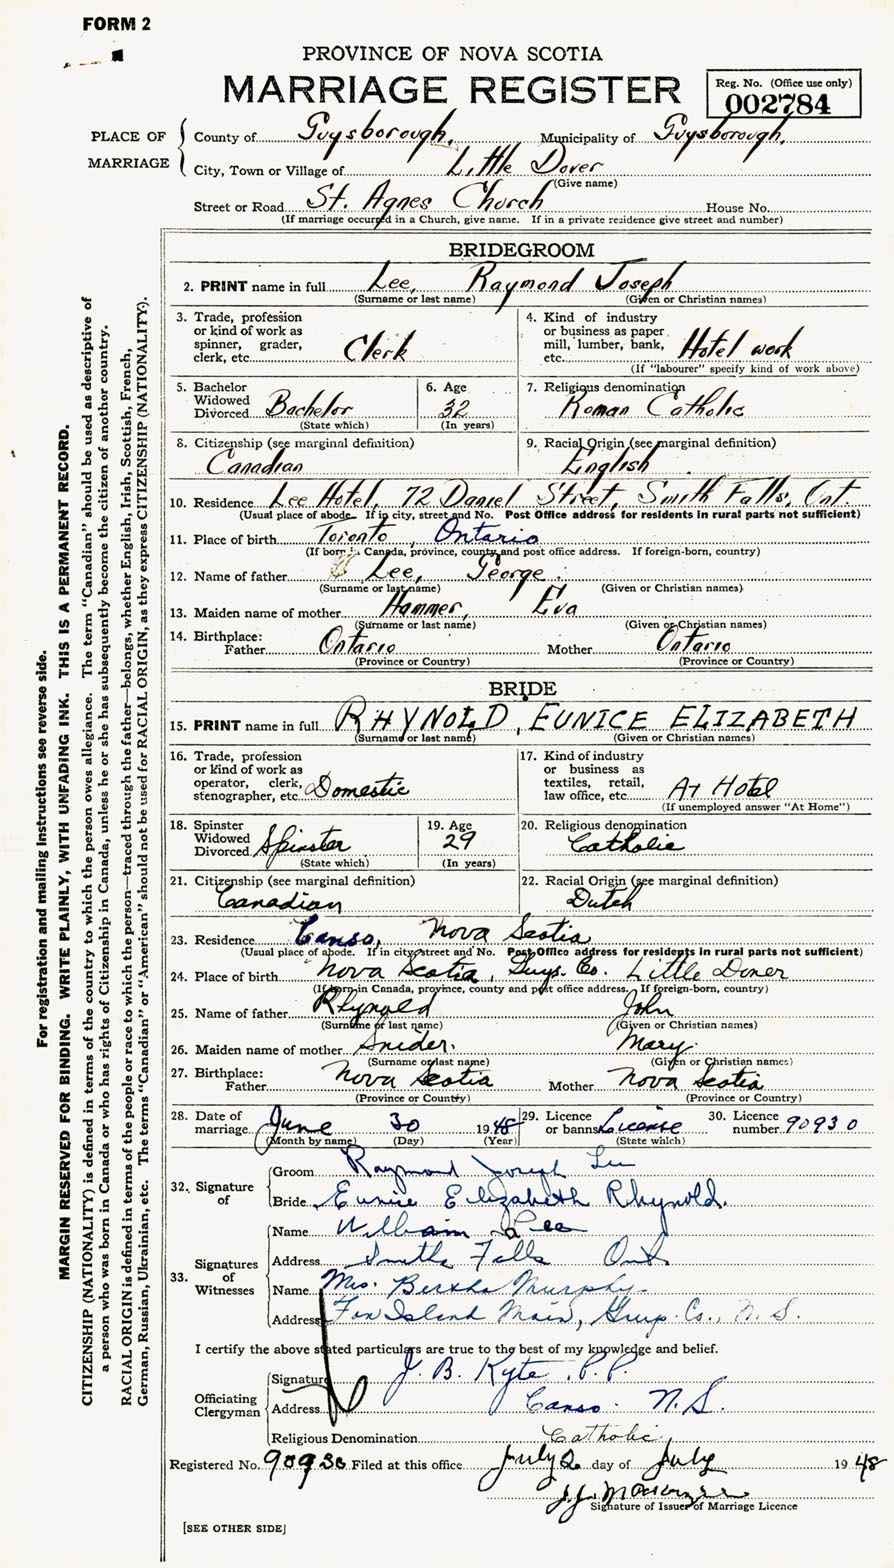 FORM 2
PROVINCE OF NOVA SCOTIA
MARRIAGE REGISTER
Reg. No. (Office use only)
002784
PLACE OF MARRIAGE
County of Guysborough, Municipality of Guysborough,
City, Town or Village of Little Dover
(Give name)
Street or Road St. Agnes Church House No.
(If marriage occurred in a Church, give name. If in a private residence give street and number)
BRIDEGROOM
2. PRINT name in full Lee, Raymond Joseph
(Surname or last name) (Given or Christian names)
3. Trade, profession or kind of work as spinner, grader, clerk, etc. Clerk
4. Kind of industry or business as paper mill, lumber, bank, etc. Hotel work
(If "labourer" specify kind of work above)
5. Bachelor Widowed Divorced Bachelor
(State which)
6. Age 32
(In years)
7. Religious denomination
Roman Catholic
8. Citizenship (see marginal definition)
Canadian
9. Racial Origin (see marginal definition)
English
10. Residence Lee Hotel, 72 Daniel Street, Smith Falls, Ont.
(Usual place of abode. If in city, street and No. Post Office address for residents in rural parts not sufficient)
11. Place of birth Toronto, Ontario
(If born in Canada, province, county and post office address. If foreign-born, country)
12. Name of father Lee, George
(Surname or last name) (Given or Christian names)
13. Maiden name of mother Hammer, Eva
(Surname or last name) (Given or Christian names)
14. Birthplace:
Father Ontario Mother Ontario
(Province or Country) (Province or Country)
BRIDE
15. PRINT name in full RHYNOLD, EUNICE ELIZABETH
(Surname or last name) (Given or Christian names)
16. Trade, profession or kind of work as operator, clerk, stenographer, etc. Domestic
17. Kind of industry or business as textiles, retail, law office, etc. At Hotel
(If unemployed answer "At Home")
18. Spinster Widowed Divorced Spinster
(State which)
19. Age 29
(In years)
20. Religious denomination
Catholic
21. Citizenship (see marginal definition)
Canadian
22. Racial Origin (see marginal definition)
Dutch
23. Residence Canso, Nova Scotia
(Usual place of abode. If in city, street and No. Post Office address for residents in rural parts not sufficient)
24. Place of birth Nova Scotia, Guys. Co. Little Dover
(If born in Canada, province, county and post office address. If foreign-born, country)
25. Name of father Rhynold John
(Surname or last name) (Given or Christian names)
26. Maiden name of mother Snider. Mary.
(Surname or last name) (Given or Christian names)
27. Birthplace:
Father Nova Scotia Mother Nova Scotia
(Province or Country) (Province or Country)
28. Date of marriage June 30 1948
(Month by name) (Day) (Year)
29. Licence or banns License
(State which)
30. Licence number 90930
32. Signature of
Groom Raymond Joseph Lee
Bride Eunice Elizabeth Rhynold.
33. Signatures of Witnesses
Name William Lee
Address Smiths Falls Ont
Name Mrs. Bertha Murphy
Address Fox Island Main, Guys. Co., N.S.
I certify the above stated particulars are true to the best of my knowledge and belief.
Officiating Clergyman
Signature J. B. Kyte. P.P.
Address Canso. N.S.
Religious Denomination Catholic
Registered No. 90930 Filed at this office July 2 day of July 1948
Signature of Issuer of Marriage Licence
[SEE OTHER SIDE]
For registration and mailing instructions see reverse side.
MARGIN RESERVED FOR BINDING. WRITE PLAINLY, WITH UNFADING INK. THIS IS A PERMANENT RECORD.
CITIZENSHIP (NATIONALITY) is defined in terms of the country to which the person owes allegiance. The term "Canadian" should be used as descriptive of
a person who was born in Canada or who has rights of Citizenship in Canada, unless he or she has subsequently become the citizen of another country.
RACIAL ORIGIN is defined in terms of the people or race to which the person—traced through the father—belongs, whether English, Irish, Scottish, French,
German, Russian, Ukrainian, etc. The terms "Canadian" or "American" should not be used for RACIAL ORIGIN, as they express CITIZENSHIP (NATIONALITY).